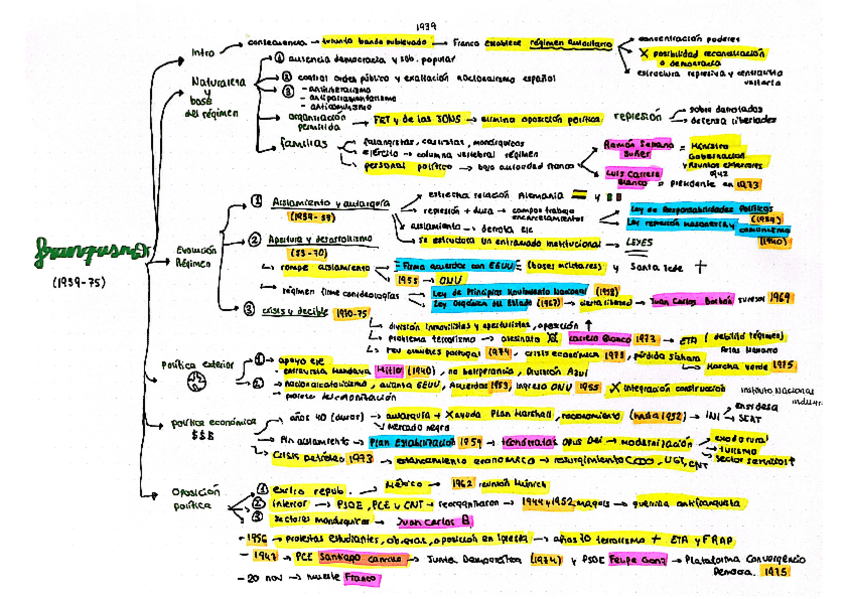 1939
Intro → consecuencia → triunfo bando sublevado → Franco establece régimen autoritario
concentración poderes
X posibilidad reconciliación o democracia
estructura represiva y centralista
Naturaleza y base del régimen
① ausencia democracia y sob. popular
② control orden público y exaltación nacionalismo español
③ - antiliberalismo
- antiparlamentarismo
- anticomunismo
organización permitida → FET y de las JONS → elimina oposición política
represión
sobre derrotados
defensa libertades
familias
falangistas, carlistas, monárquicos
ejército → columna vertebral régimen
personal político → bajo autoridad franco
Ramón Serrano Suñer = Ministro Gobernación y Asuntos exteriores
Luis Carrero Blanco = presidente en 1973
franquismo
(1939-75)
Evolución Régimen
① Aislamiento y autarquía
(1939-59)
estrecha relación Alemania y
represión + dura → campos trabajo
encarcelamientos
Ley de Responsabilidades Políticas (1939)
Ley represión masonería y comunismo (1940)
aislamiento → derrota eje
se estructura un entramado institucional → LEYES
② Apertura y desarrollismo
(59-70)
rompe aislamiento
Firma acuerdos con EEUU (bases militares) y Santa Sede
1955 → ONU
régimen firme con ideologías
Ley de Principios Movimiento Nacional (1958)
Ley Orgánica del Estado (1967) → cierta libertad → Juan Carlos Borbón sucesor 1969
③ crisis y declive 1970-75
división inmovilistas y aperturistas, oposición ↑
problema terrorismo → asesinato Carrero Blanco 1973 → ETA (debilitó régimen)
Arias Navarro
rev claveles Portugal 1974, crisis económica 1973, pérdida Sahara
Marcha verde 1975
política exterior
① → apoyo eje
- entrevista Hendaya Hitler (1940), no beligerancia, División Azul
② → nacionalcatolicismo, alianza EEUU, Acuerdos 1953, ingreso ONU 1955 X integración
- proceso descolonización
política económica
$$$
años 40 (duros) → autarquía + X ayuda Plan Marshall, racionamiento (hasta 1952) → INI
mercado negro
Instituto Nacional
ensidesa
SEAT
Fin aislamiento → Plan Estabilización 1959 → tecnócratas Opus Dei → modernización
éxodo rural
turismo
sector servicios ↑
Crisis petróleo 1973 → estancamiento económico → resurgimiento CCOO, UGT, CNT
Oposición política
① exilio repub. → México → 1962 reunión Múnich
② interior → PSOE, PCE y CNT → reorganizaron → 1944 y 1952 maquis → guerrilla antifranquista
③ sectores monárquicos → Juan Carlos B
- 1956 → protestas estudiantes, obreras, oposición en Iglesia → años 70 terrorismo + ETA y FRAP
- PCE Santiago Carrillo → Junta Democrática (1974) y PSOE Felipe Gonz → Plataforma Convergencia Democra. 1975
- 20 nov → muerte Franco